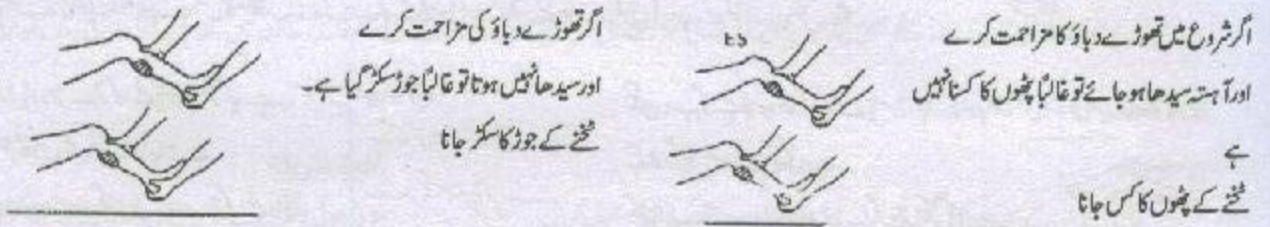 اگر شروع میں تھوڑے دباؤ کا مزاحمت کرے
اور آہستہ سیدھا ہو جائے تو غالباً پٹھوں کا کسنا نہیں
ہے
ٹخنے کے پٹھوں کا کس جانا
اگر تھوڑے دباؤ کی مزاحمت کرے
اور سیدھا نہیں ہوتا تو غالباً جوڑ سکڑ گیا ہے۔
ٹخنے کے جوڑ کا سکڑ جانا